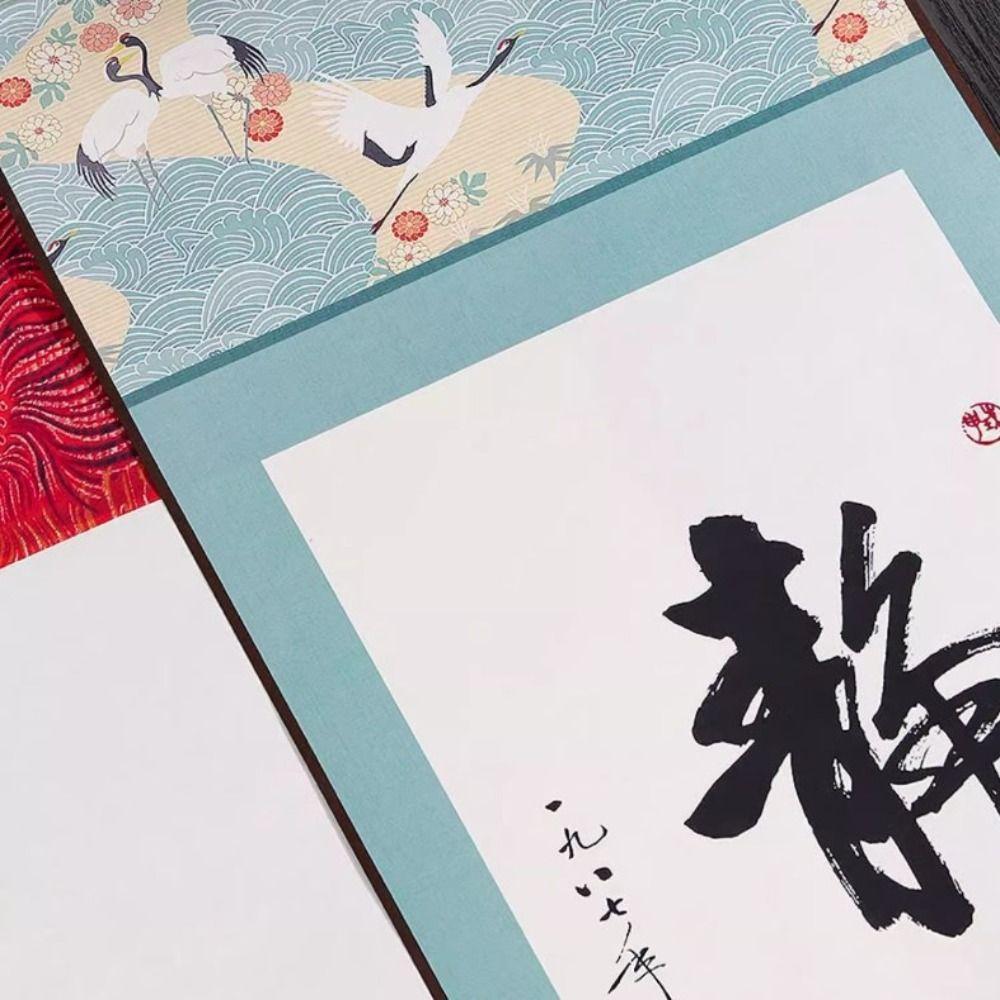 静
一九八七年